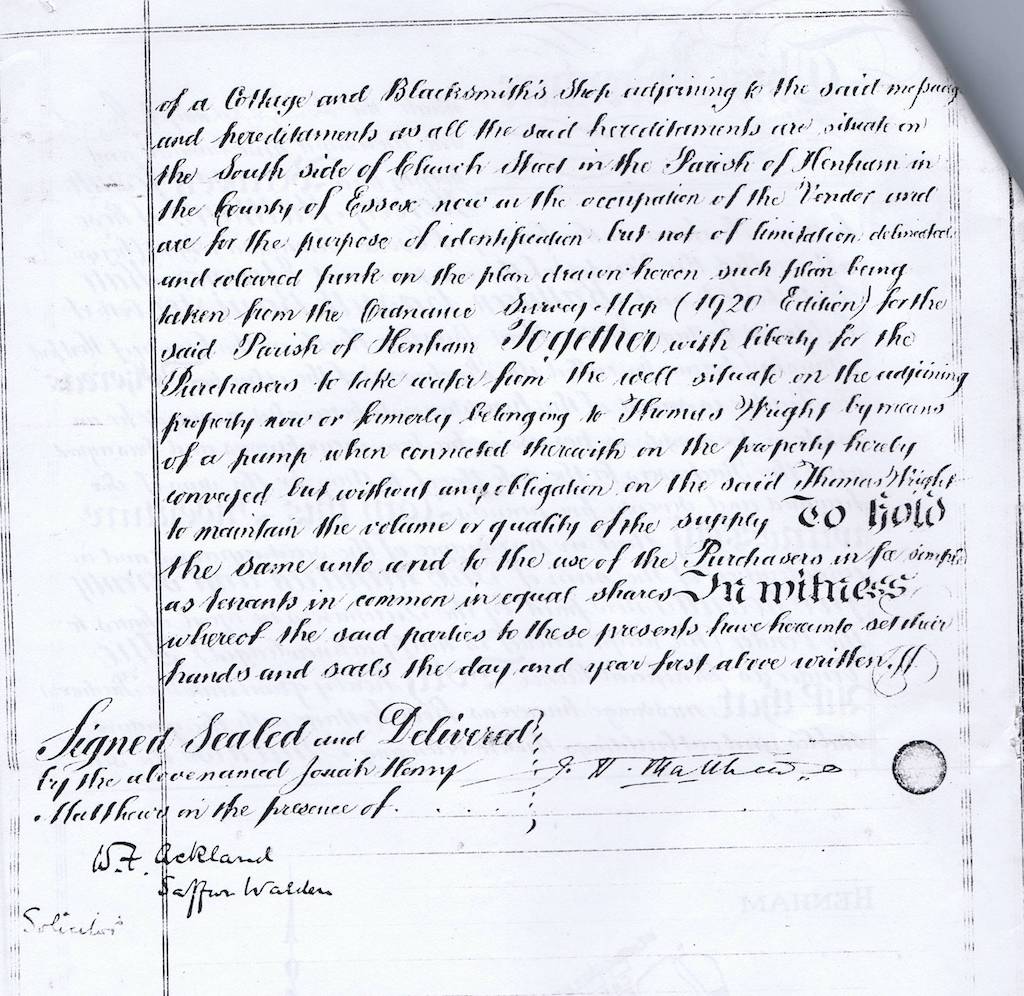 of a Cottage and Blacksmith's Shop adjoining to the said messuage
and hereditaments as all the said hereditaments are situate on
the South side of Church Street in the Parish of Henham in
the County of Essex now in the occupation of the Vendor and
are for the purpose of identification but not of limitation delineated
and coloured punk on the plan drawn hereon such plan being
taken from the Ordnance Survey Map (1920 Edition) for the
said Parish of Henham Together with liberty for the
Purchasers to take water from the well situate on the adjoining
property now or formerly belonging to Thomas Wright by means
of a pump when connected therewith on the property hereby
conveyed but without any obligation on the said Thomas Wright
to maintain the volume or quality of the supply To hold
the same unto and to the use of the Purchasers in fee simple
as tenants in common in equal shares In witness
whereof the said parties to these presents have hereunto set their
hands and seals the day and year first above written.
Signed Sealed and Delivered
by the abovenamed Josiah Henry
Matthews in the presence of
J. H. Matthews
W.F. Ackland
Saffron Walden
Solicitor
HENHAM